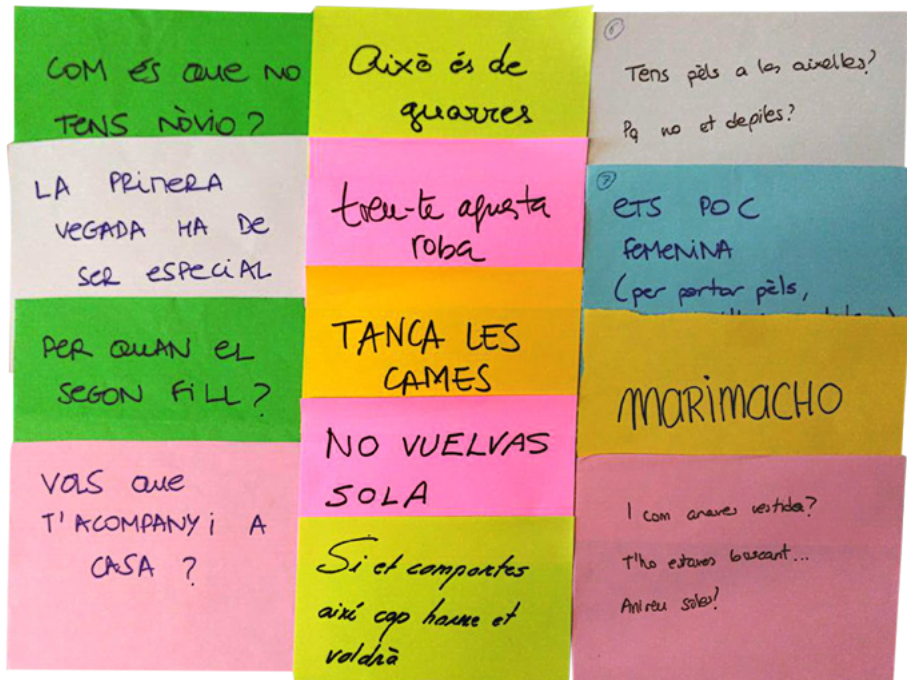 COM ÉS QUE NO
TENS NÒVIO?
LA PRIMERA
VEGADA HA DE
SER ESPECIAL
PER QUAN EL
SEGON FILL?
VOLS QUE
T'ACOMPANYI A
CASA ?
Això és de
guarres
treu-te aquesta
roba
TANCA LES
CAMES
NO VUELVAS
SOLA
Si et comportes
així cap home et
voldrà
6
Tens pèls a les aixelles?
Pq no et depiles?
7
ETS POC
FEMENINA
(per portar pèls,
MARIMACHO
I com anaves vestida?
T'ho estaves buscant...
Anireu soles!